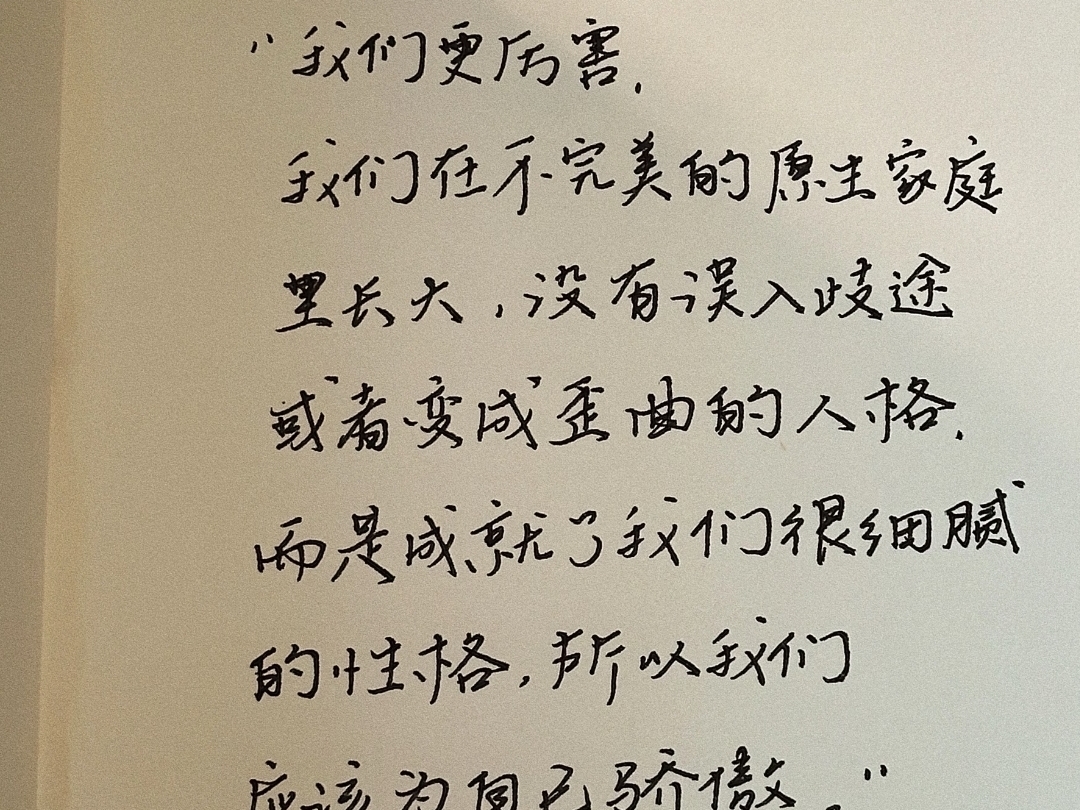 “我们更厉害.
我们在不完美的原生家庭
里长大，没有误入歧途
或者变成歪曲的人格.
而是成就了我们很细腻
的性格，所以我们
应该为自己骄傲.”